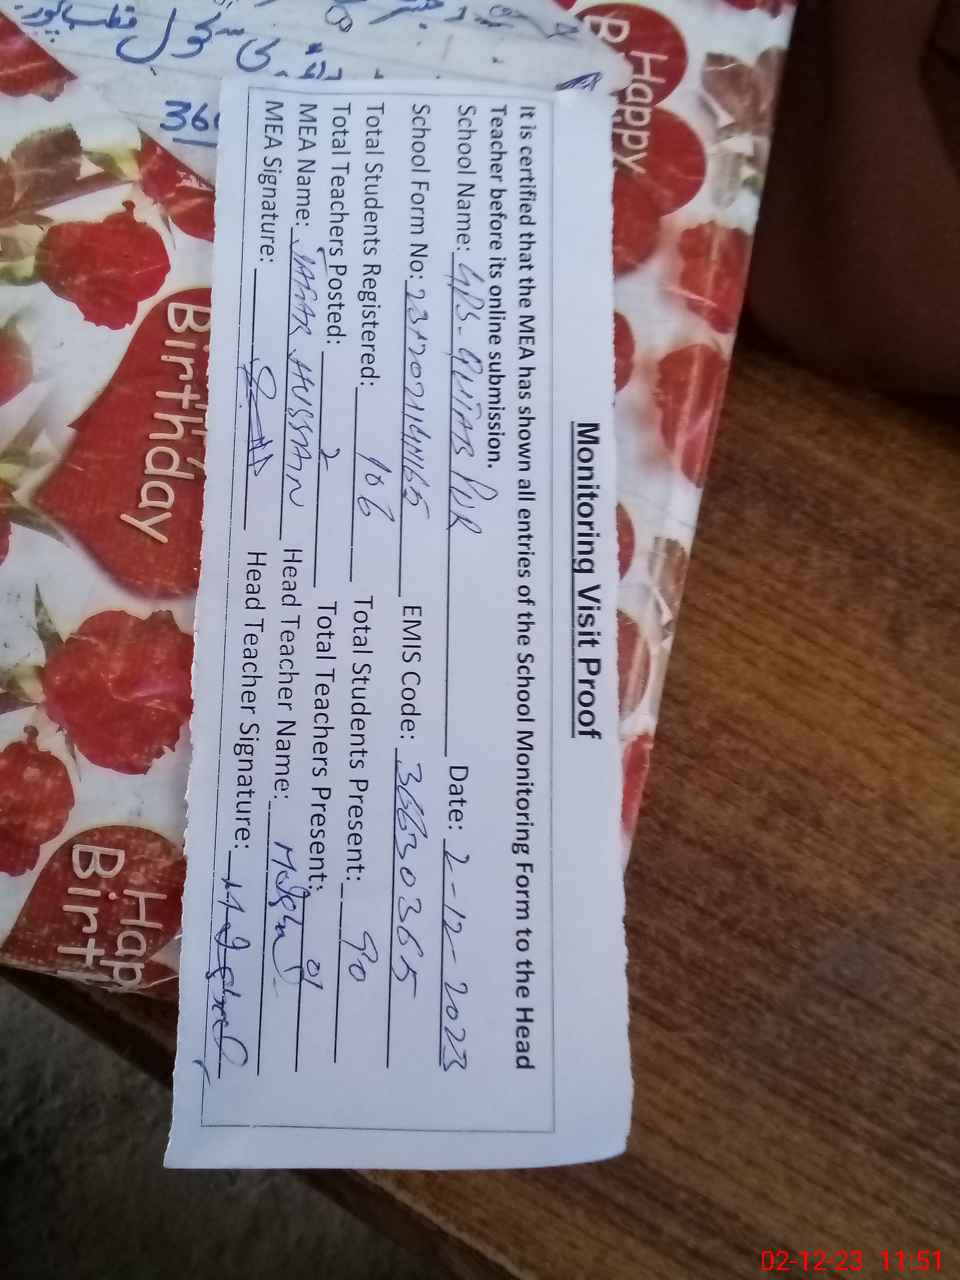 Monitoring Visit Proof
It is certified that the MEA has shown all entries of the School Monitoring Form to the Head
Teacher before its online submission.
School Name: GPS- PUR Date: 2-12-2023
School Form No: EMIS Code: 36630365
Total Students Registered: 106 Total Students Present: 90
Total Teachers Posted: 2 Total Teachers Present: 01
MEA Name: JAFAR HUSSAIN Head Teacher Name:
MEA Signature: Head Teacher Signature:
Happy
B
Birthday
Hap
Birt
02-12-23 11:51